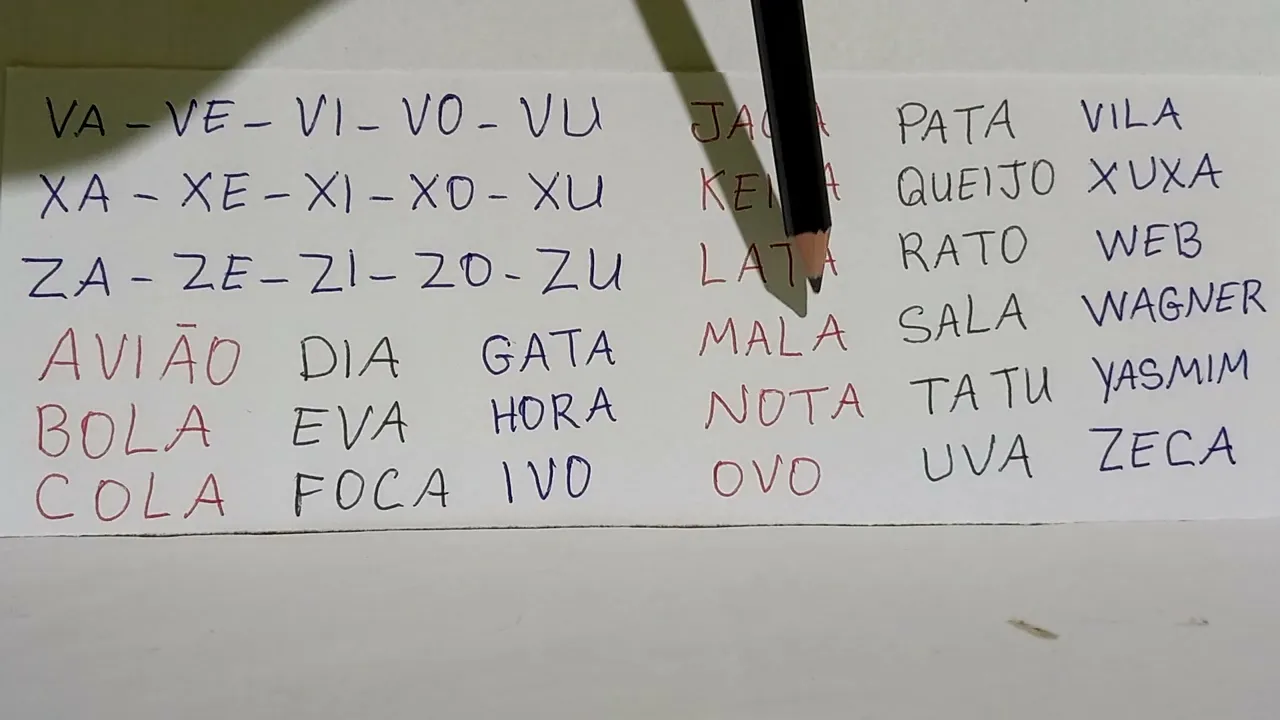 VA - VE - VI - VO - VU
XA - XE - XI - XO - XU
ZA - ZE - ZI - ZO - ZU
AVIÃO
BOLA
COLA
DIA
EVA
FOCA
GATA
HORA
IVO
JACA
LATA
MALA
NOTA
OVO
PATA
QUEIJO
RATO
SALA
TATU
UVA
VILA
XUXA
WEB
WAGNER
YASMIM
ZECA